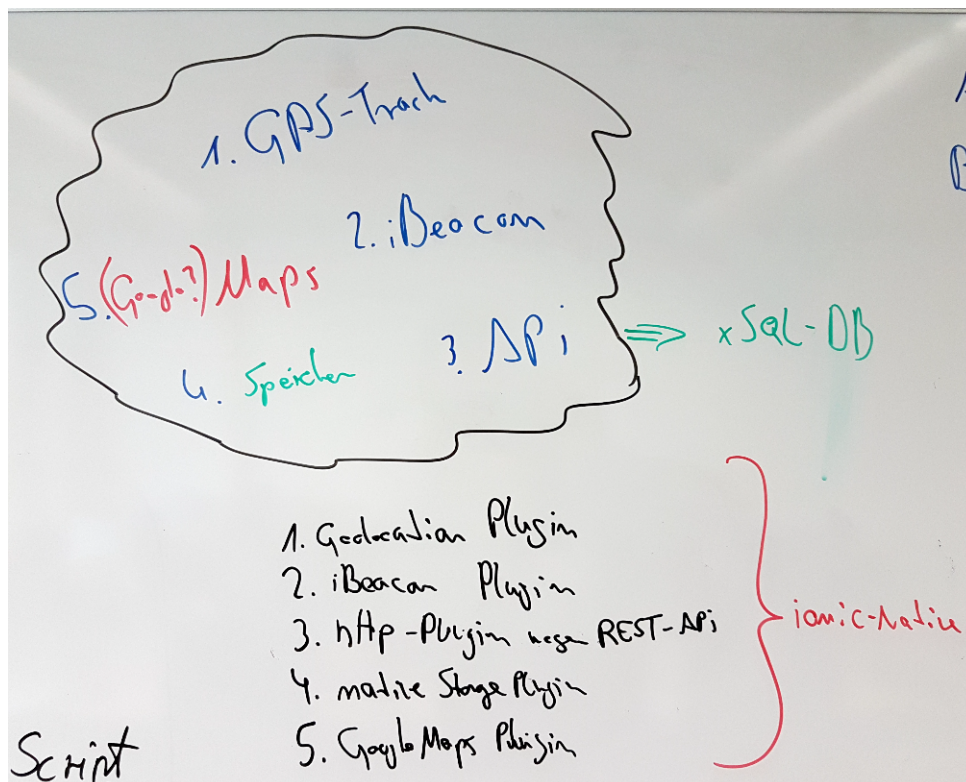 1. GPS-Track
2. iBeacon
5. (Google?) Maps
3. APi ⇒ xSQL-DB
4. Speicher
1. Geolocation Plugin
2. iBeacon Plugin
3. http-Plugin wegen REST-APi
4. native Storage Plugin
5. Google Maps Plugin
ionic-Native
Script